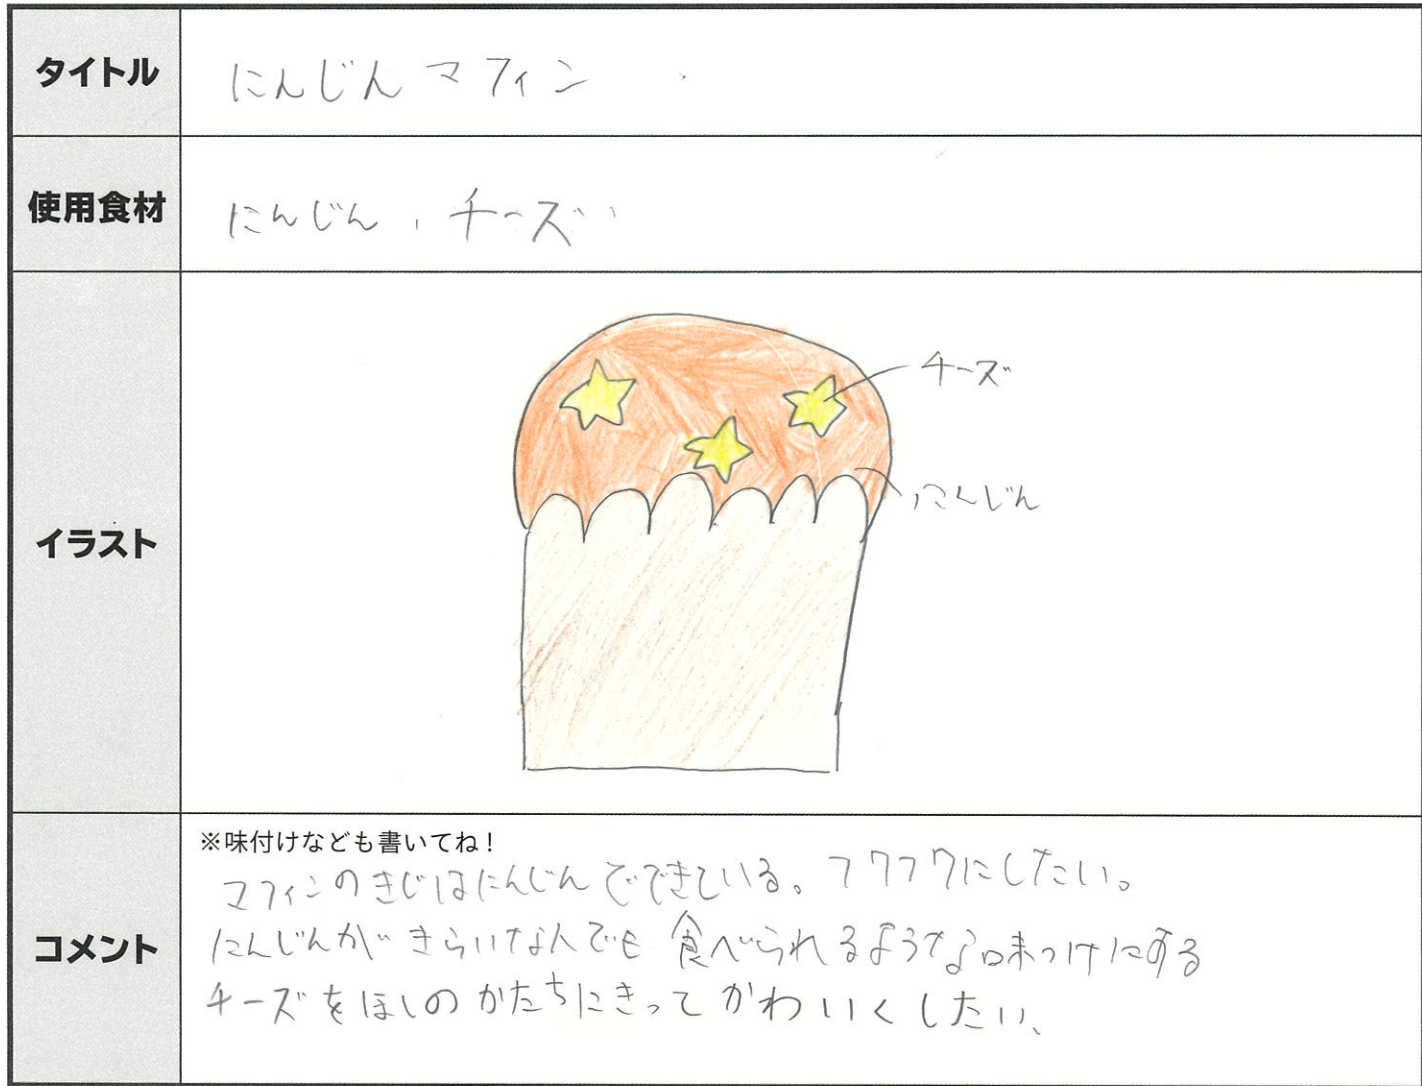 タイトル
にんじん マフィン
使用食材
にんじん、チーズ
イラスト
チーズ
にんじん
コメント
※味付けなども書いてね！
マフィンのきじはにんじんでできている。フワフワにしたい。
にんじんが きらいな人でも 食べられるような味つけにする
チーズをほしのかたちにきって かわいくしたい、